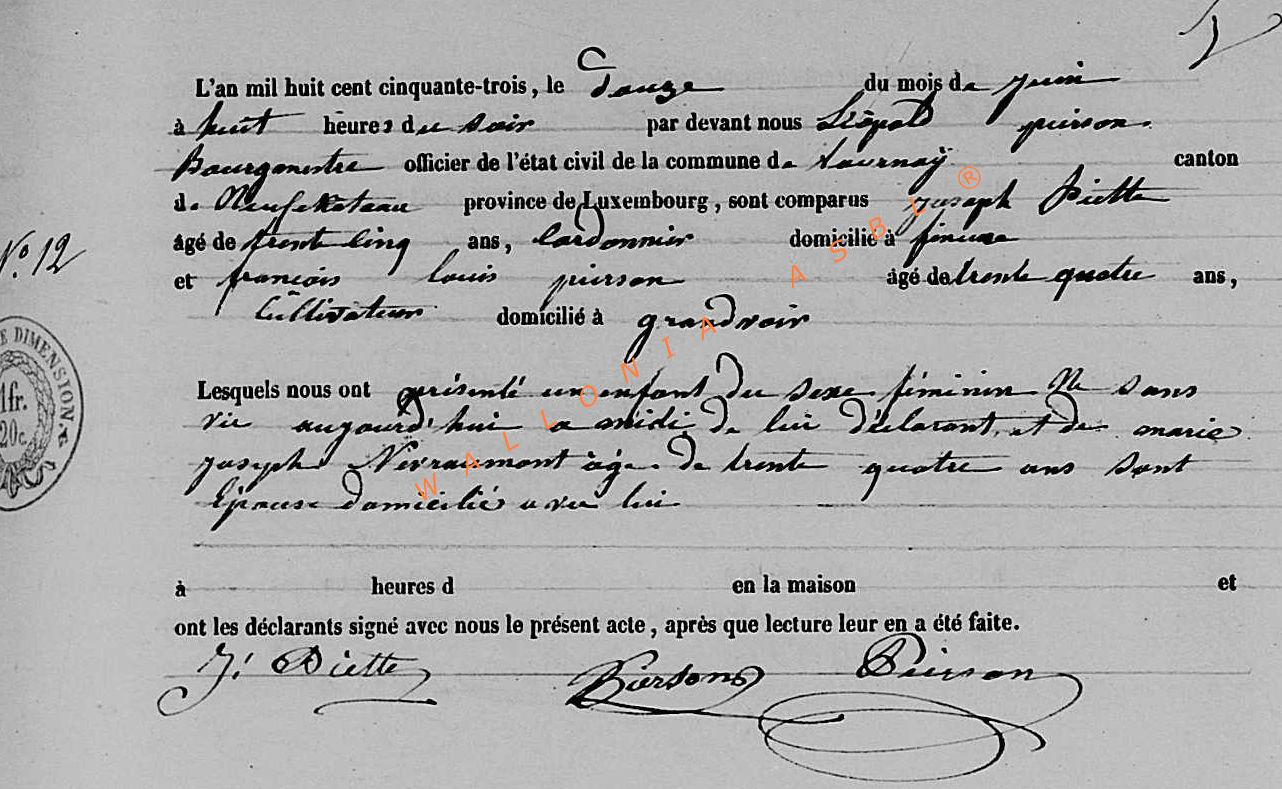 L'an mil huit cent cinquante-trois, le Douze du mois de juin
à huit heures du soir par devant nous Léopold pierson
Bourgmestre officier de l'état civil de la commune de tournaÿ canton
de Neufchateau province de Luxembourg, sont comparus joseph Piette
âgé de trente cinq ans, Cordonnier domicilié à
N.° 12
et françois louis pierson âgé de trente quatre ans,
Cultivateur domicilié à grandvoir
DIMENSION.
1fr.
20c.
Lesquels nous ont présenté un enfant du sexe féminin Né sans
vie aujourd'hui a midi de lui déclarant, et de marie
joseph Nevraumont âgé de trente quatre ans sont
Epouse domicilié avec lui
à heures d en la maison et
ont les déclarants signé avec nous le présent acte, après que lecture leur en a été faite.
J. Piette Pierson Pierson
WALLONIA ASBL ®